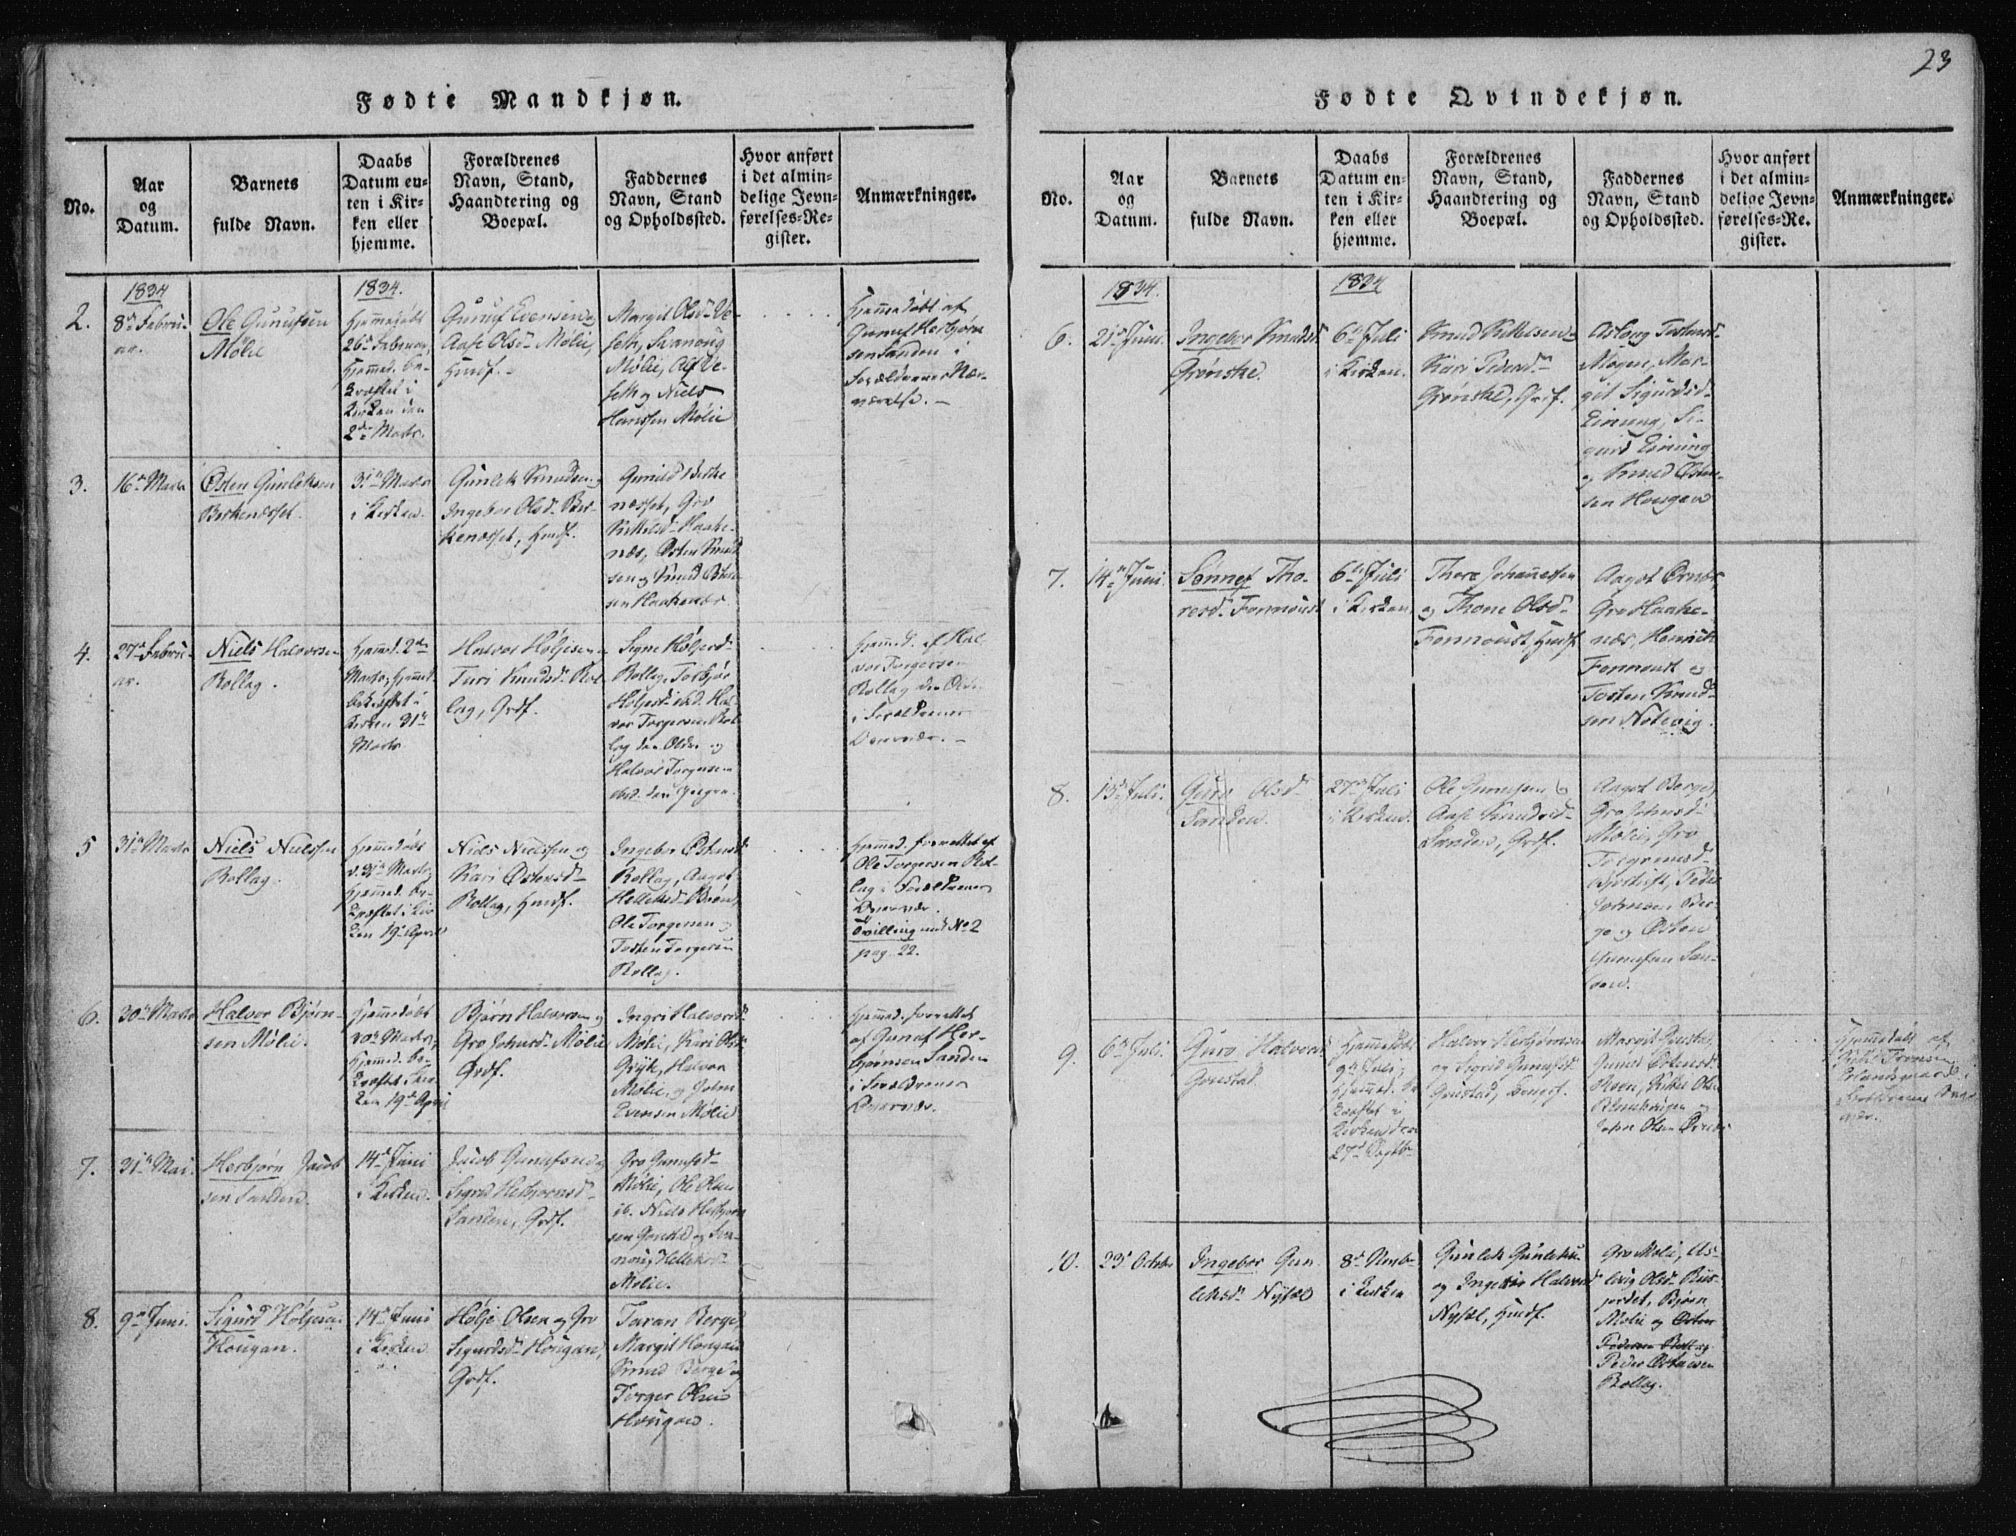 23
Fødte Mandkjøn.
No.
Aar
og
Datum.
Barnets
fulde Navn.
Daabs
Datum en-
ten i Kir-
ken eller
hjemme.
Forældrenes
Navn, Stand,
Haandtering og
Boepæl.
Faddernes
Navn, Stand
og Opholdssted.
Hvor anført
i det almin-
delige Jevn-
førelses-Re-
gister.
Anmærkninger.
1834
1834.
2.
8de Februar
ar.
Ole Gunufsen
Mølie
Hjemmedøbt
26de Februar,
Hjemmed. be-
kræftet i
Kirken den
2den Marts.
Gunuf Evensen og
Aase Olsd. Mølie,
Hmdf.
Margit Olsd. Ve-
seth, Svanoug
Mølie, Ole Ve-
seth og Niels
Hansen Mølie
Hjemmedøbt af
Gunuf Herbjørn-
sen Sanden i
Forældrenes Nær-
værelse.
3.
16de Marts
Østen Gunleksen
Berkenæsset.
31te Marts
i Kirken.
Gunlek Knudsen og
Ingebor Olsd. Ber-
kenæsset, Hmdf.
Gunild Berke
næsset, Gro
Kittilsd. Haake-
næs, Østen Knud
sen og Knud Østen
sen Haakenæs
4.
27de Februar
ar.
Niels Halvorsen
Rollag.
Hjemmed. 2den
Marts, Hjemmed.
bekræftet i
Kirken 31te
Marts
Halvor Høljesen
Turi Knudsd. Rol
lag, Grdf.
Signe Høljesd.
Rollag, Torbjør
Høljesd. ibid. Hal
vor Torgersen Rol
lag den Ældre og
Halvor Torgersen
ibid. den yngre.
Hjemmed. af Hal
vor Torgersen
Rollag den Ældre
i Forældrenes
Overvær.
5
31te Marts
Niels Nielsen
Rollag.
Hjemmedøbt
d. 31te Marts,
Hjemmed. be-
kræftet i Kir
ken 19de April
Niels Nielsen og
Kari Østensd.
Rollag, Hmdf.
Ingebor Østensd.
Rollag, Aagot
Helleksd.
Ole Torgersen og
Tosten Torgersen
Rollag.
Hjemmed. forrettet af
Ole Torgersen Rol-
lag i Forældrenes
Overvær.
Tvilling med No 2
pag. 22.
6.
30te Marts
Halvor Bjørn-
sen Mølie.
Hjemmedøbt
30te Marts,
Hjemmed. be-
kræftet i Kir-
ken 19de April
Bjørn Halvorsen og
Gro Johnsd. Mølie
Grdf.
Ingri Halvorsd.
Mølie, Kari Olsd.
Halvor
Mølie, og John
Evensen Mølie
Hjemmed. forrettet
af Gunuf Her-
bjørnsen Sanden
i Forældrenes
Overvær.
7.
31te Mai.
Herbjørn Jacob
sen Sanden.
14de Juni
i Kirken.
Jacob Gunufsen og
Sigrid Herbjørnsd.
Sanden, Grdf.
Gro Gunufsd.
Mølie, Ole Olsen
ib. Niels Herbjørn
sen Gonstad og
Helleksd.
Mølie.
8.
9de Juni.
Sigurd Høljesen
Hougan.
14de Juni
i Kirken.
Hølje Olsen og Gro
Sigurdsd. Hougan,
Grdf.
Taran Berge,
Margit Hougan
Knud Berge og
Torger Olsen
Hougan.
Fødte Qvindekjøn.
No.
Aar
og
Datum.
Barnets
fulde Navn.
Daabs
Datum en-
ten i Kir-
ken eller
hjemme.
Forældrenes
Navn, Stand,
Haandtering og
Boepæl.
Faddernes
Navn, Stand
og Opholdssted.
Hvor anført
i det almin-
delige Jevn-
førelses-Re-
gister.
Anmærkninger.
1834.
1834
6.
21de Juni.
Ingebor Knudsd.
Grønske.
6te Juli
i Kirken.
Knud Kittelsen og
Kari Pedersd.
Grdf.
Aslaug Tostensd.
Mogen, Mar-
git Sigurdsd.
Einung, Si-
gurd Einung
og Knud Østen-
sen Hougan
7.
14de Juni
Sønnef Tho-
resd. Fonnoust
6te Juli
i Kirken.
Thore Johannessen
og Thone Olsd.
Fonnoust, Hmdf.
Aagot
Gro Haake-
næs, Henrik
Fonnoust og
Tosten Knud-
sen
8.
13de Juli.
Guro Olsd.
Sanden.
27de Juli
i Kirken.
Ole Gunufsen og
Aase Knudsd.
Sanden, Grdf.
Aagot Berge,
Gro Johnsd.
Mølie, Gro
Torgrimsd.
Peder
Johnsen Ber-
ge og Østen
Gunufsen San-
den.
9.
6te Juli.
Guro Halvorsd.
Gonstad.
Hjemmedøbt
9de Juli,
Hjemmed. be
kræftet i
Kirken den
27de Septbr.
Halvor Herbjørnsen
og Sigrid Gunufsd.
Gonstad,
Gunild Østensd.
Kittil Olsen
John Olsen
Hjemmedøbt af
Forældrenes
10.
23de Octobr
Ingebor Gun
leksd. Nystul
8de Novbr.
i Kirken
Gunlek Gunleksen
og Ingebor Halvorsd.
Nystul, Hmdf.
Gro Mølie, As-
laug Olsd.
Bjørn
Mølie og Østen
Pedersen Rollag
Peder Østensen
Rollag.